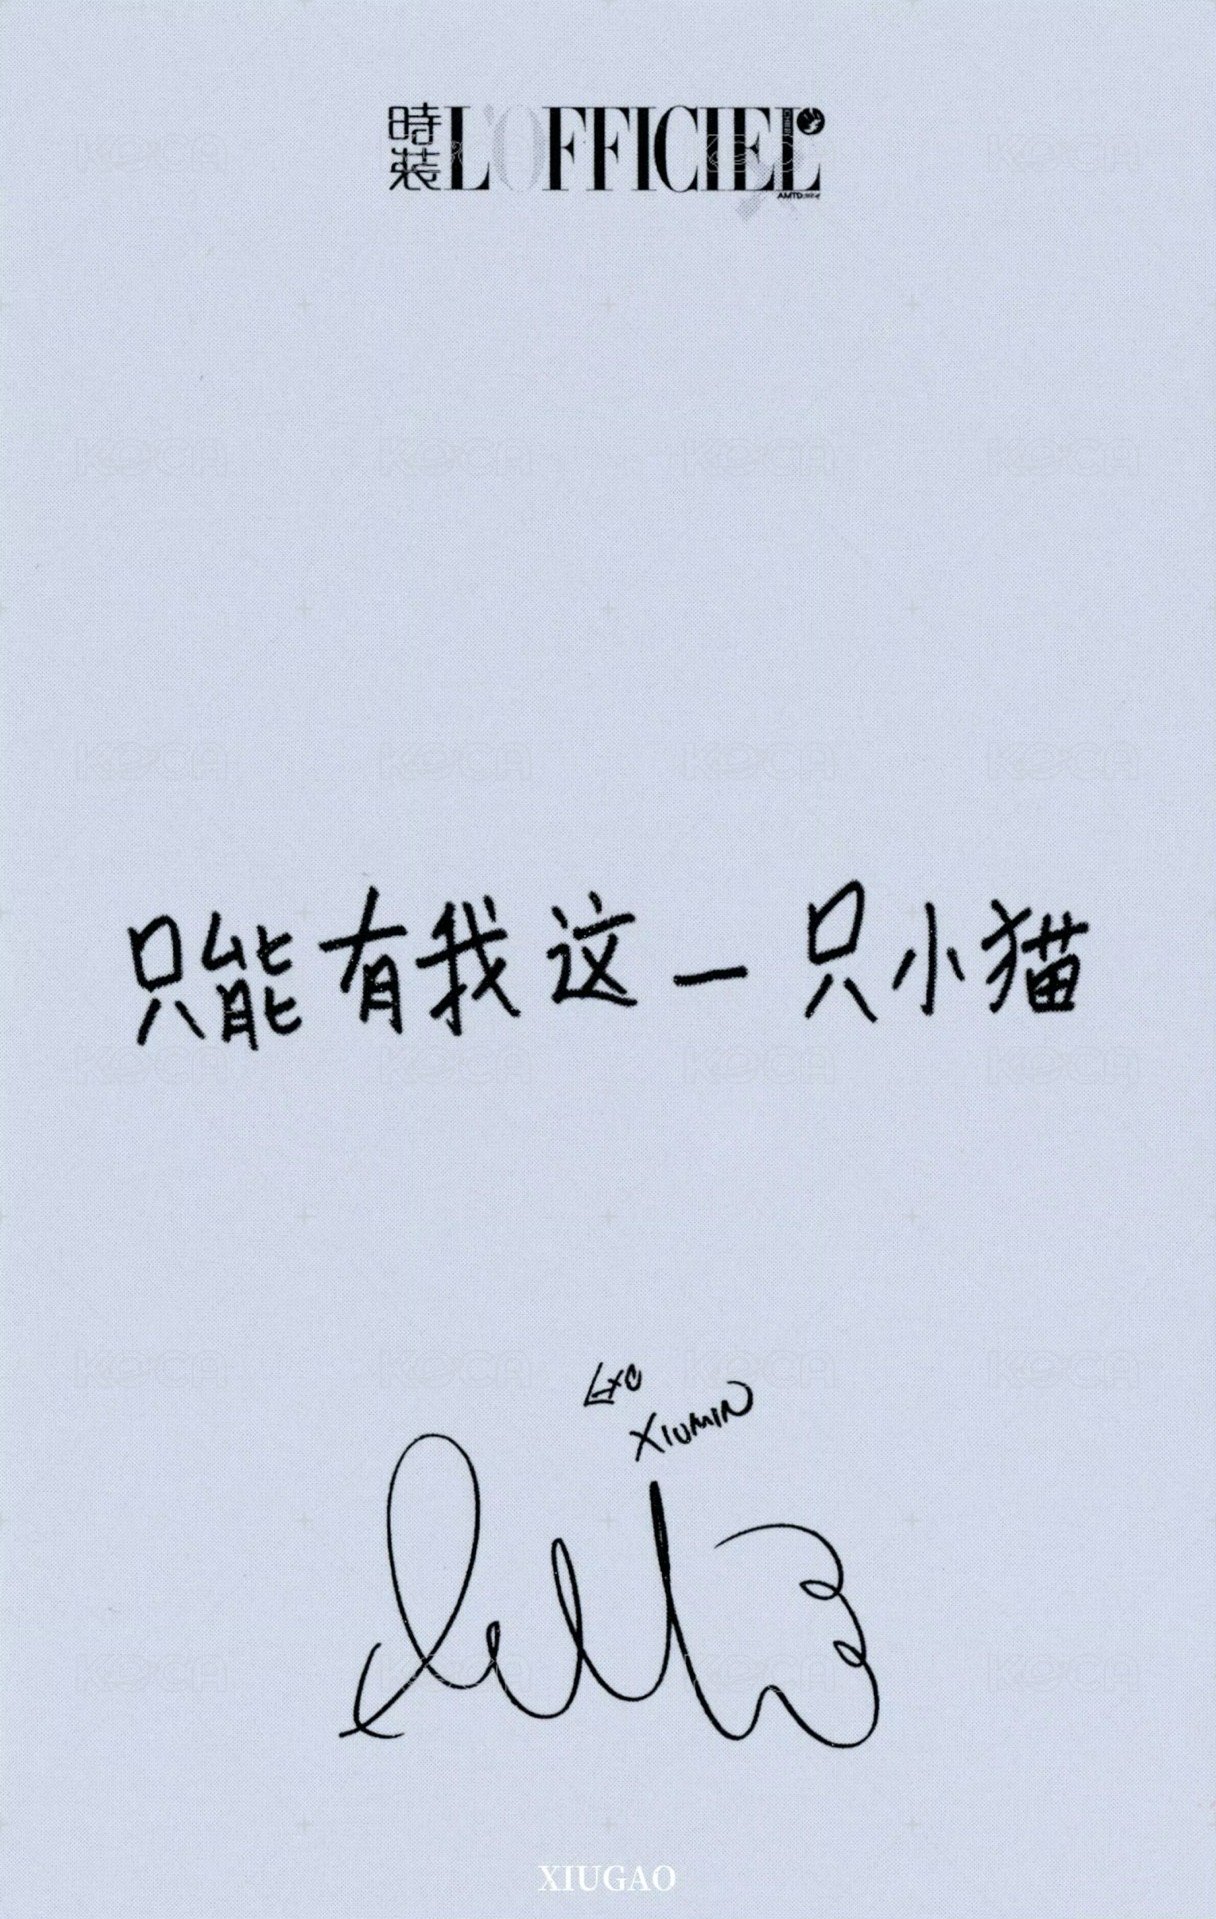 時裝 L'OFFICIEL
只能有我这一只小猫
EXO
XIUMIN
XIUGAO